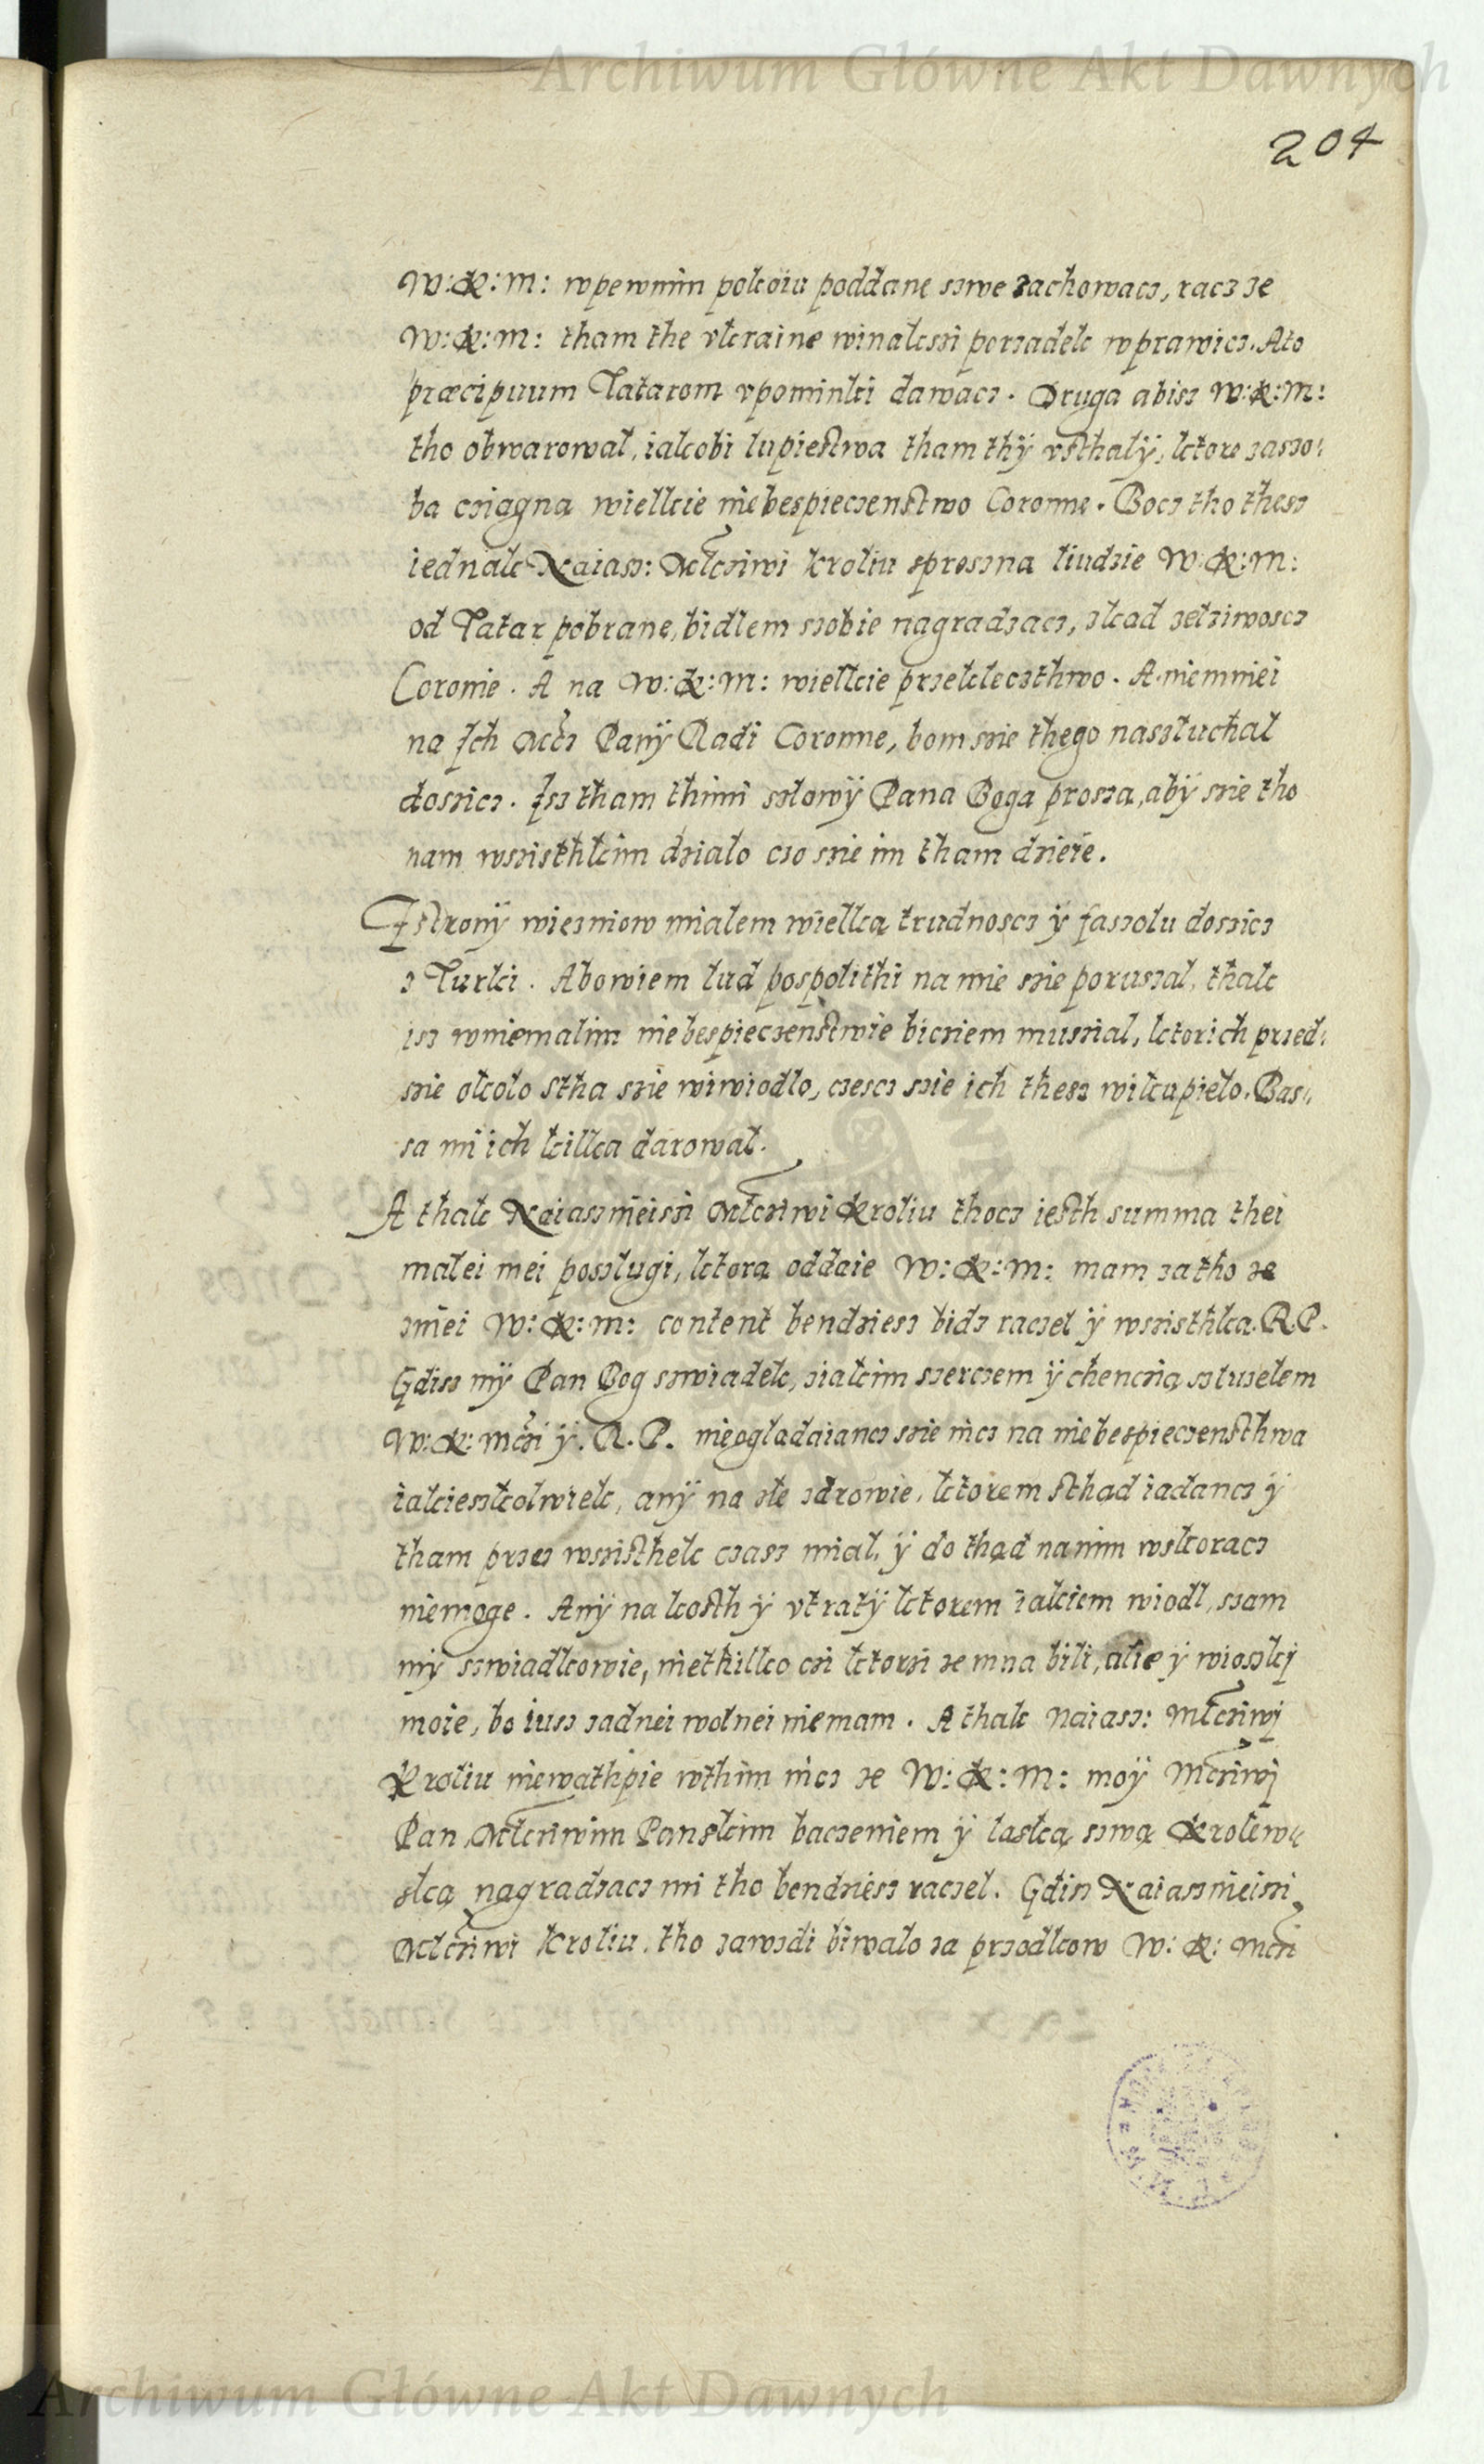 Archiwum Główne Akt Dawnych
204
W: K: M: wpewnim pokoiu poddane szwe zachowacz, racz ze
W: K: M: tham the vkraine winakszi porzadek wprawicz. Ato
præcipuum Tatarom vpominki dawacz. Druga abisz W: K: M:
tho obwarował, iakobi lupiestwa tham thÿ vsthalÿ, ktore zaszo„
ba cziagna wielkie niebespieczenstwo Coronne. Bocz tho thesz
iednak Naiasz: Młcziwi Kroliu sproszna liudzie W: K: M:
od Tatar pobrane, bidlem szobie nagradzacz, skad zelziwoscz
Coronie. A na W: K: M: wielkie przeklecztwo. A niemniei
na Ich Mczi Panÿ Radi Coronne, bom szie thego naszluchal
doszicz. Isz tham thimi szlowÿ Pana Boga prosza, abÿ szie tho
nam wszisthkim dzialo czo szie im tham dzieie.
Z stronÿ wiezniow mialem wielka trudnoscz ÿ faszolu doszicz
z Turki. Abowiem lud pospolithi na mie szie poruszal, thak
isz wniemalim niebespieczenstwie bicziem musział, ktorich przed„
szie okolo stha szie wiwiodlo, czescz szie ich thesz wikupielo. Bas„
sa mi ich kilka darowal.
A thak Naiaszmieiszi Młcziwi Kroliu thocz iesth summa thei
malei mei poszlugi, ktora oddaie W: K: M: mam zatho ze
zmei W: K: M: content bendziesz bidz raczel ÿ wszisthka. R. P.
Gdisz mÿ Pan Bog szwiadek, ziakim szerczem ÿ chenczią szluzełem
W: K: Mczi ÿ. R. P. nieogladaiancz szie nicz na niebespieczensthwa
iakieszkolwiek, anÿ na złe zdrowie, ktorem sthad iadancz ÿ
tham przez wszisthek czasz mial, ÿ do thąd nanim wskoracz
niemoge. Anÿ na kosth ÿ vtratÿ ktorem iakiem wiodl, szam
mÿ szwiadkowie, niethilko czi ktorzi ze mna bili, alie ÿ wioszkj
moie, bo iusz zadnei wolnei niemam. A thak Naiasz: Młcziwj
Kroliu niewathpie wthim nicz ze W: K: M: moÿ Mcziwj
Pan, Młcziwim Panskim baczeniem ÿ laską szwą Krolew„
ską nagradzacz mi tho bendziesz raczel. Gdisz Naiaszmieiszi
Młcziwi Kroliu, tho zawzdi biwalo za przodkow W: K: Mczi
Archiwum Główne Akt Dawnych